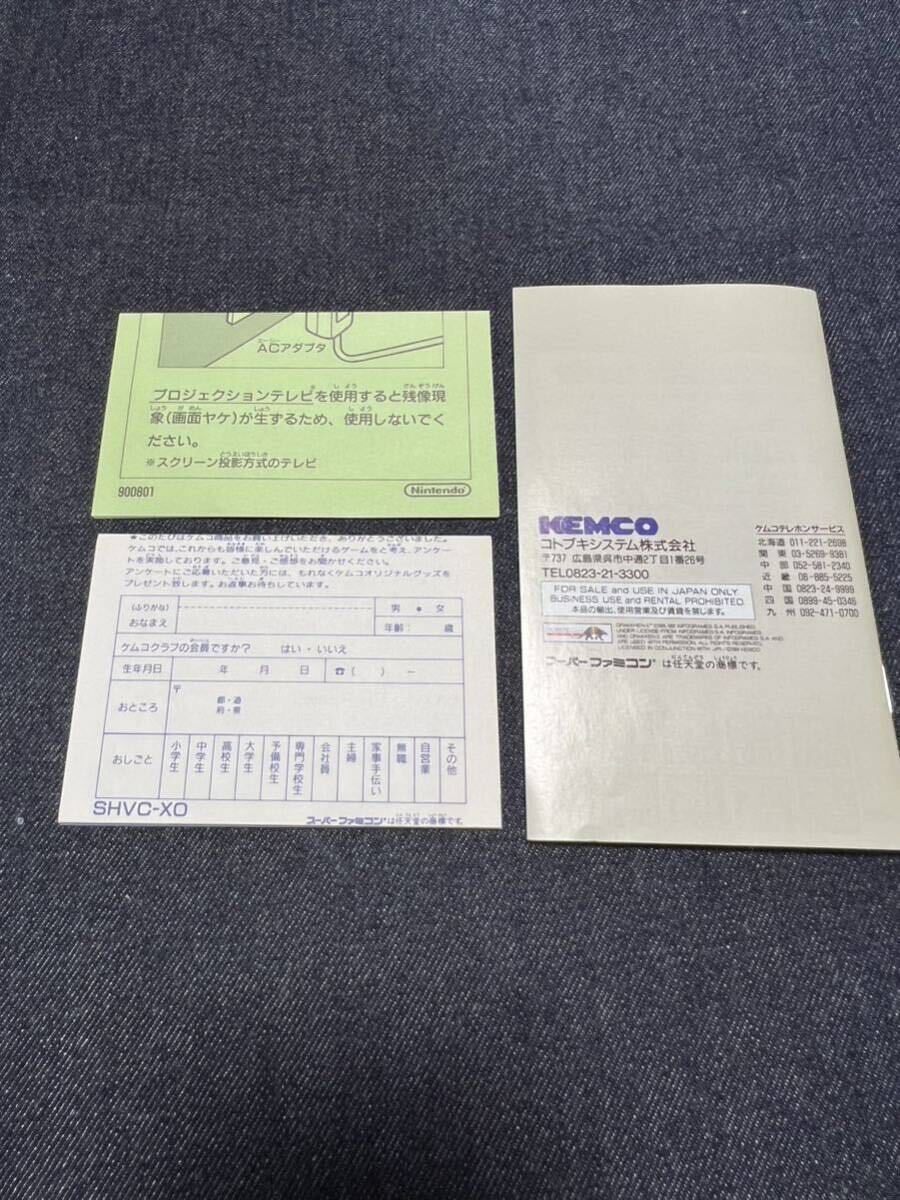 ACアダプタ
プロジェクションテレビを使用すると残像現
象(画面ヤケ)が生するため、使用しないでく
ださい。
※スクリーン投影方式のテレビ
900801
Nintendo
★このたびはケムコ商品をお買い上げいただき、ありがとうございました。
ケムコでは、これからも皆様に楽しんでいただけるゲームをと考え、アンケー
トを実施しております。ご意見・ご感想をお聞かせください。
アンケートにご応募いただいた方には、もれなくケムコオリジナルグッズを
プレゼント致します。お返事お待ちしています。
(ふりがな)
男 ● 女
おなまえ
年齢: 歳
ケムコクラブの会員ですか? はい・いいえ
生年月日 年 月 日 ☎( ) ー
〒
おところ
都・道
府・県
おしごと
小学生 中学生 高校生 大学生 予備校生 専門学校生 会社員 主婦 家事手伝い 無職 自営業 その他
SHVC-XO
スーパーファミコンは任天堂の商標です。
KEMCO
コトブキシステム株式会社
〒737 広島県呉市中通2丁目1番26号
TEL0823-21-3300
FOR SALE and USE IN JAPAN ONLY.
BUSINESS USE and RENTAL PROHIBITED.
本品の輸出、使用営業及び賃貸を禁じます。
UNDER LICENSE FROM INFOGRAMES S.A. INFOGRAMES S.A.
AND DRAKKHEN, ARE TRADEMARKS OF INFOGRAMES S.A. AND
ARE USED WITH PERMISSION, ALL RIGHTS RESERVED.
スーパーファミコン®は任天堂の商標です。
ケムコテレホンサービス
北海道 011-221-2698
関 東 03-5269-9381
中 部 052-581-2340
近 畿 06-885-5225
中 国 0823-24-9999
四 国 0899-45-0346
九 州 092-471-0700